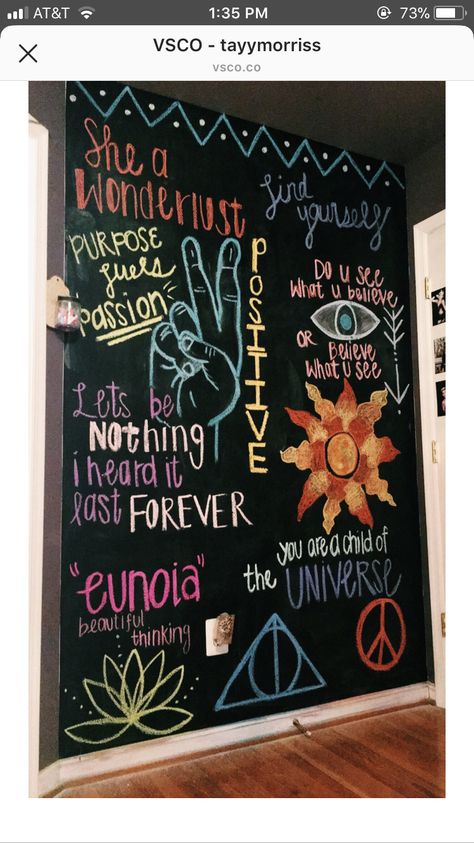 AT&T
1:35 PM
73%
VSCO - tayymorriss
vsco.co
She a
Wonderlust
PURPOSE
fuels
passion
POSITIVE
find
yourself
Do u see
What u believe
OR Believe
What u see
Lets be
Nothing
i heard it
last FOREVER
"eunoia"
beautiful
thinking
you are a child of
the UNIVERSE